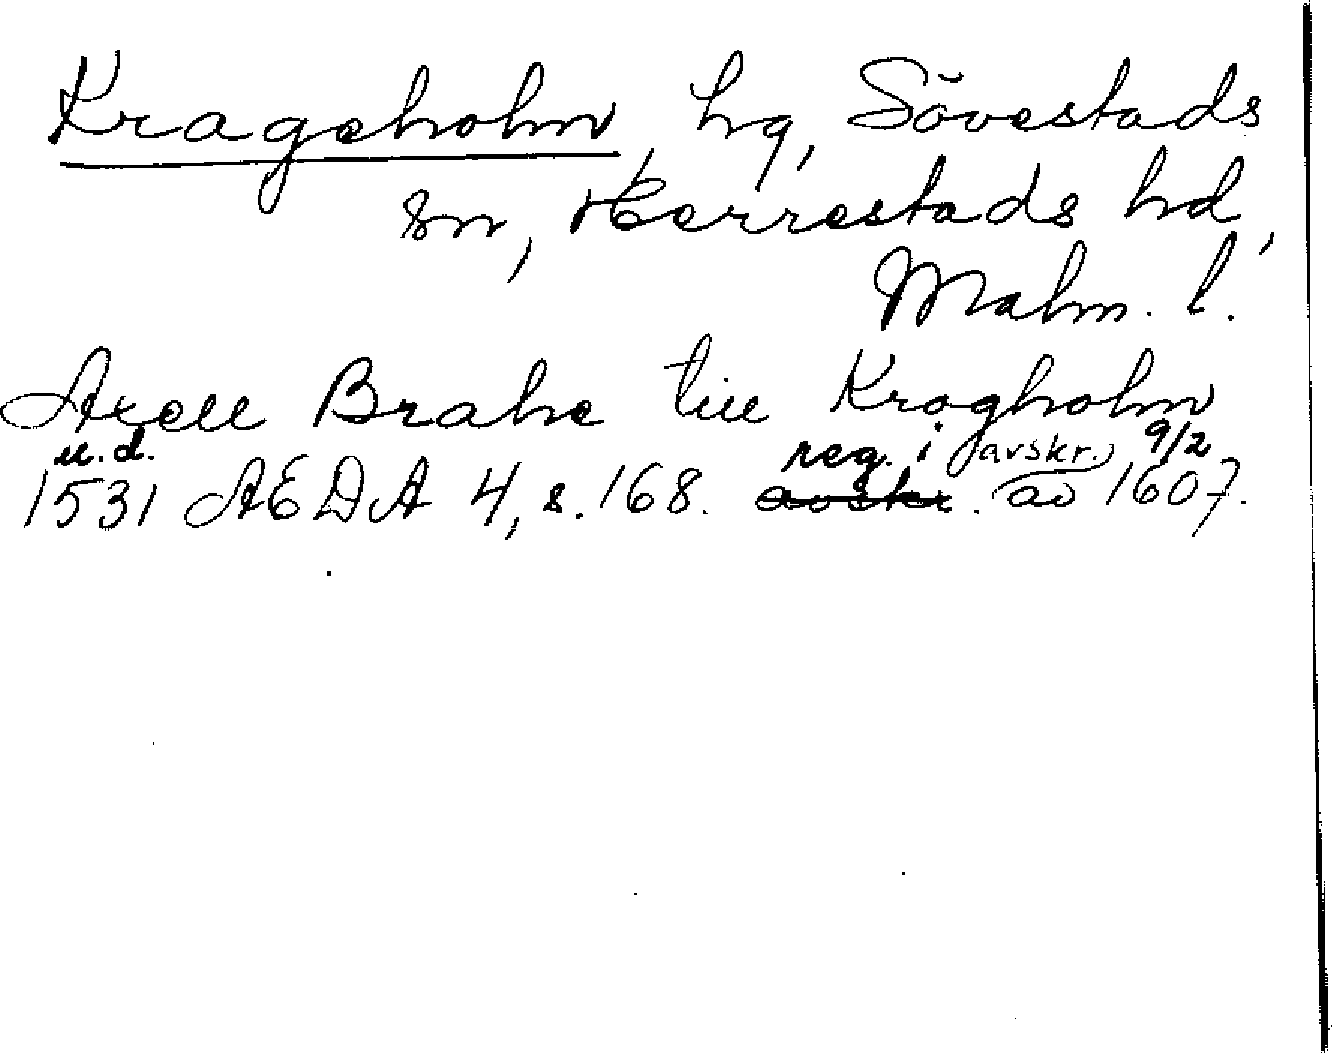 Krageholm, hg, Sövestads
sn, Herrestads hd,
Malm. l.
Axell Brahe till Krogholm
u.d.
1531 AEDA 4, s. 168. reg. i avskr. av 9/2 1607.